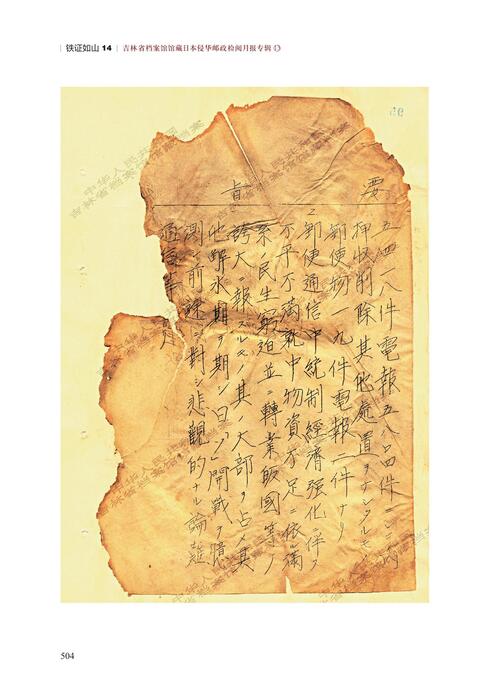 铁证如山 14 吉林省档案馆馆藏日本侵华邮政检阅月报专辑
要旨
五四一八件電報五八〇四件ニシテ内
押収削除其他処置ヲナシタルモノ
郵便物一九件電報二件ナリ
2 郵便通信中統制経済強化ニ伴フ
不平不満就中物資不足ニ依ル満
系ノ民生窮迫並ニ転業帰国等ノ
誇大ニ報ズルモノ其ノ大部ヲ占メ其
他解氷期ヲ期シ日「ソ」開戦ヲ憶
測シ前途ニ対シ悲観的ナル論難
504